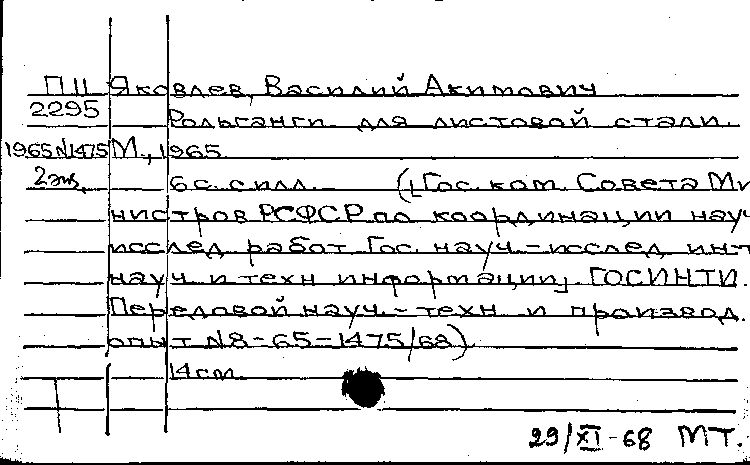 П11 Яковлев, Василий Акимович
2295 Рольганги для листовой стали.
1965N1475 М., 1965.
2 экз. 6 с. с илл. (Гос. ком. Совета Ми
нистров РСФСР по координации науч
исслед работ Гос. науч.-исслед ин-т
науч и техн информации, ГОСИНТИ.
Передовой науч.-техн и производ.
опыт N8-65-1475/68)
14 см.
29/XI-68 МТ.